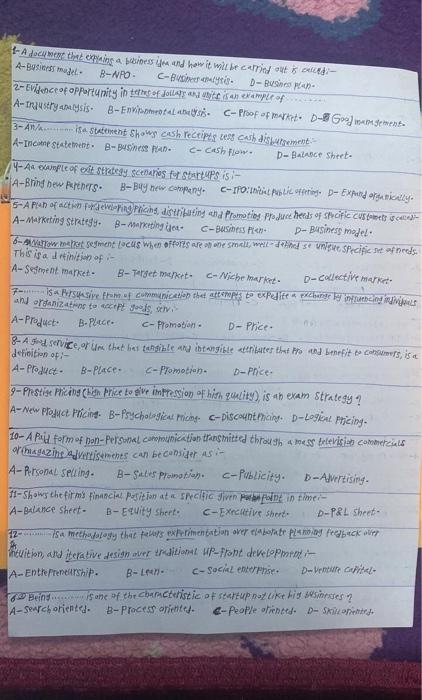 1- A document that explains a business idea and how it will be carried out is called:-
A- Business model. B- NPO. C- Business analysis. D- Business plan.
2- Evidence of opportunity in terms of dollars and units is an example of ..........
A- Industry analysis. B- Environmental analysis. C- Proof of market. D- Good management.
3- An/a .......... is a statement shows cash receipts less cash disbursement:-
A- Income statement. B- Business plan. C- Cash flow. D- Balance sheet.
4- An example of exit strategy scenarios for startups is:-
A- Bring new partners. B- Buy new company. C- IPO: Initial public offering. D- Expand organically.
5- A plan of action for developing pricing, distributing and promoting produce needs of specific customers is called:-
A- Marketing strategy. B- Marketing idea. C- Business plan. D- Business model.
6- A Narrow market segment locus when efforts are on one small, well-defined se unique specific set of needs.
This is a definition of :-
A- Segment market. B- Target market. C- Niche market. D- Collective market.
7- .......... is a persuasive from of communication that attempts to expedite a exchange by influencing individuals
and organizations to accept goods, serv:-
A- Product. B. Place. C- Promotion. D- Price.
8- A good, service, or idea that has tangible and intangible attributes that pro and benefit to consumers, is a
definition of :-
A- Product. B- Place. C- Promotion. D- Price.
9- Prestige pricing (high price to give impression of high quality) is an exam strategy ?
A- New Product Pricing. B- Psychological pricing. C- Discount Pricing. D- Logical Pricing.
10- A Paid form of non-personal communication transmitted through a mass television commercials
or magazine advertisements can be consider as :-
A- Personal selling. B- Sales promotion. C- Publicity. D- Advertising.
11- Shows the firm's financial position at a specific given point in time:-
A- Balance sheet. B- Equity sheet. C- Executive sheet. D- P&L sheet.
12- .......... is a methodology that favors experimentation over elaborate planning feedback over
intuition, and iterative design over traditional up-front development:-
A- Entrepreneurship. B- Lean. C- Social enterprise. D- Venture capital.
Being .......... is one of the characteristic of startup not like big businesses ?
A- Search oriented. B- Process oriented. C- People oriented. D- Skill oriented.